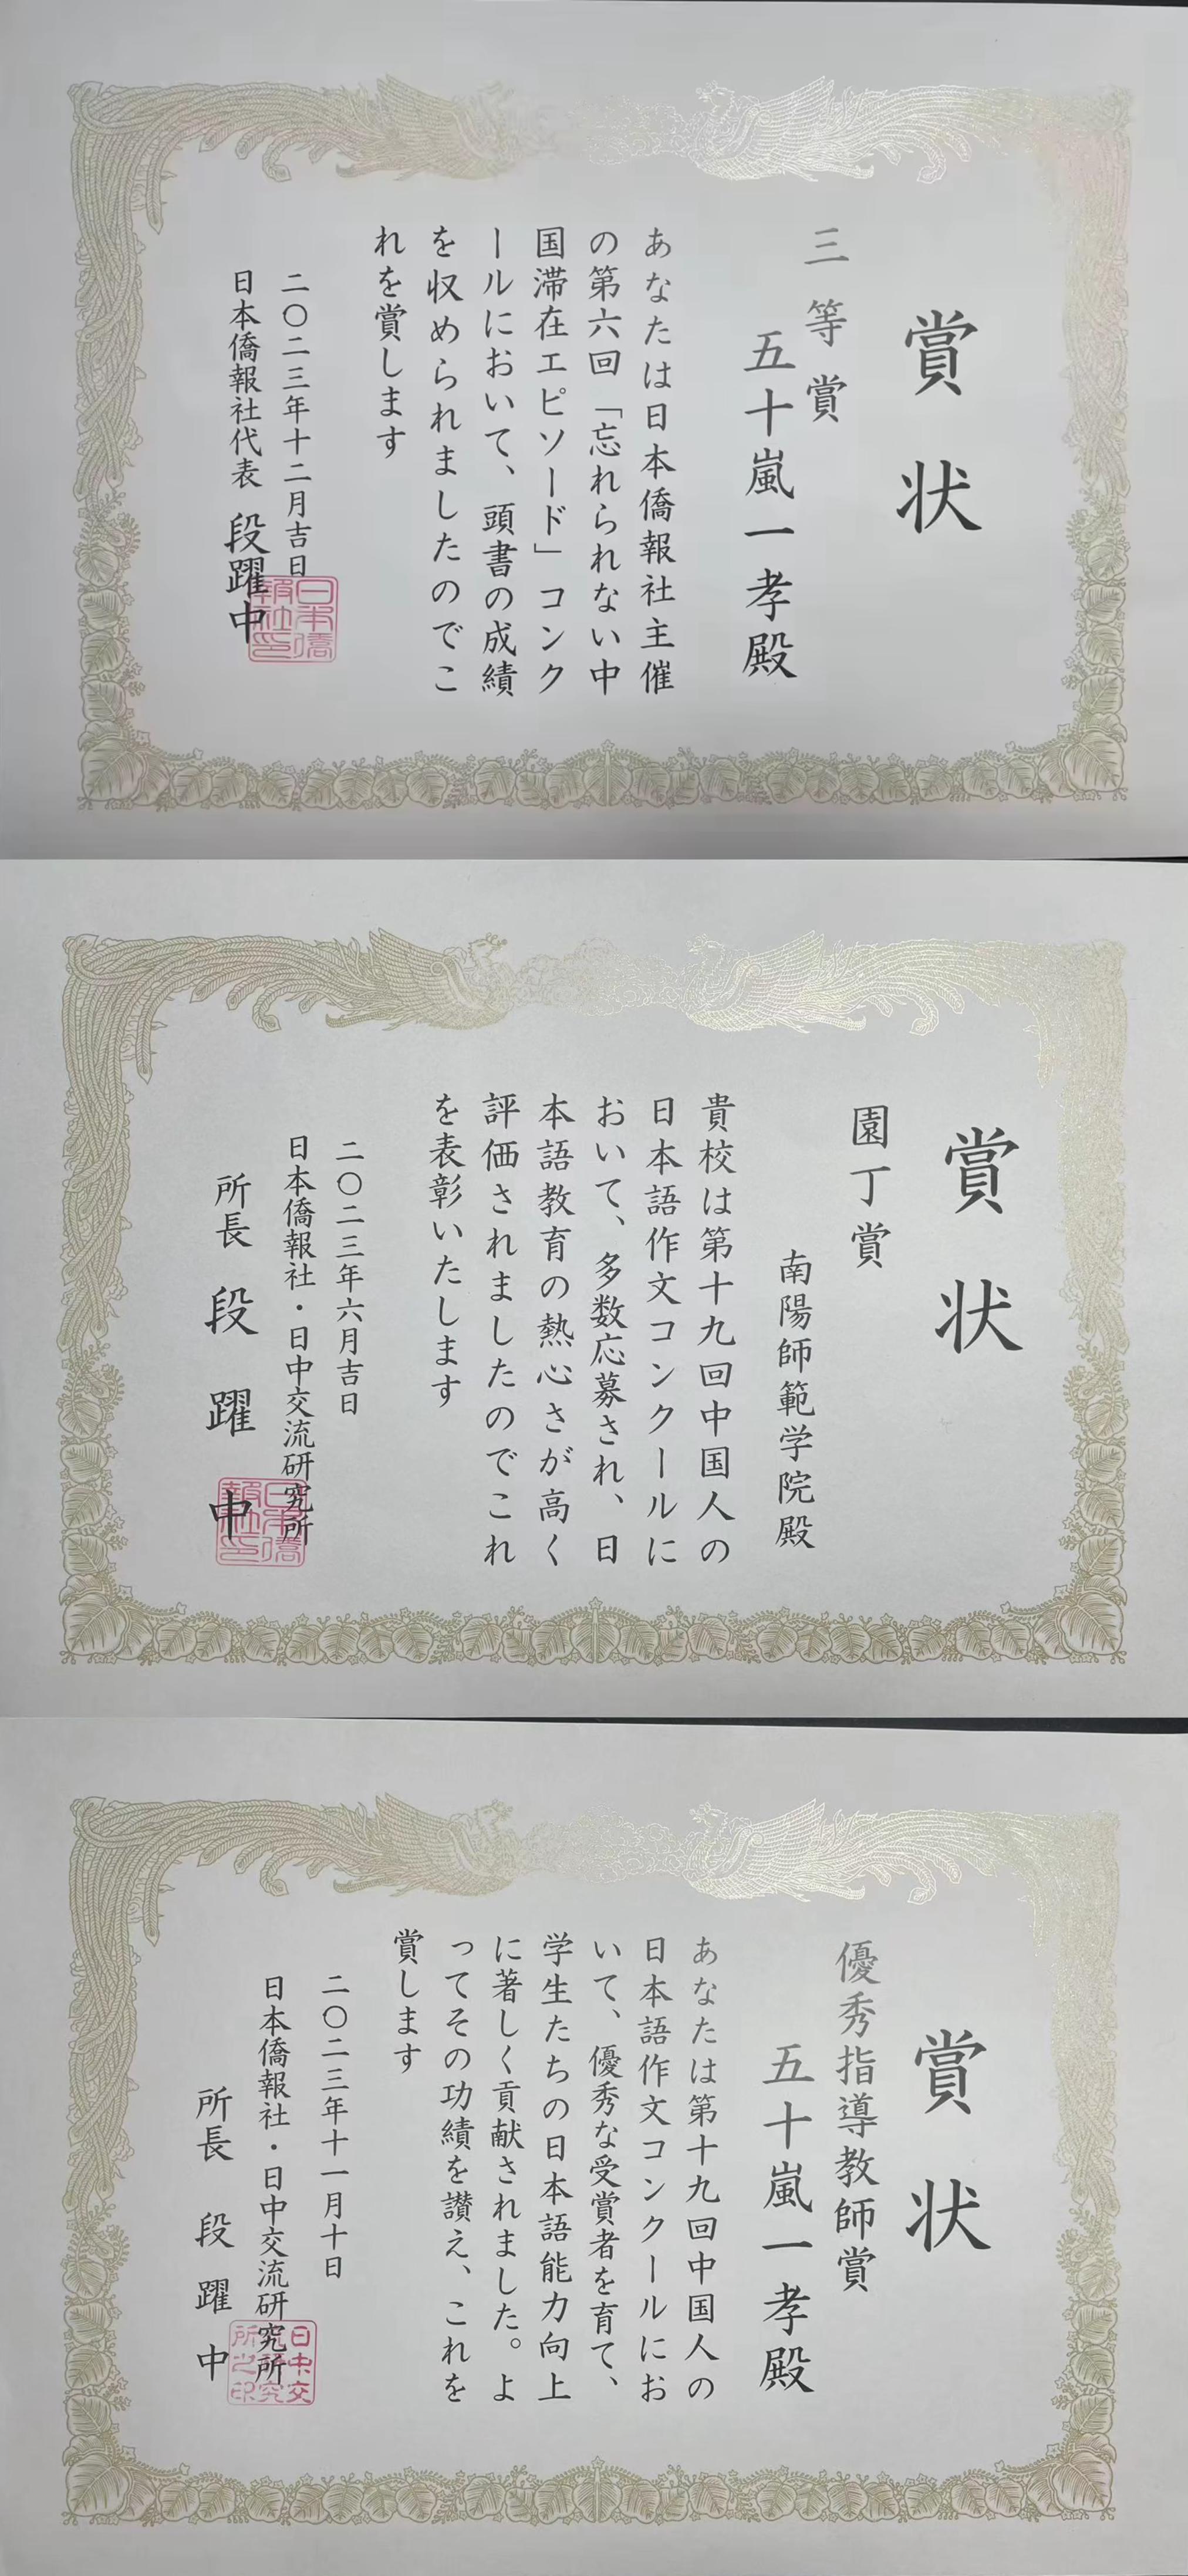 賞状
三等賞
五十嵐一孝殿
あなたは日本僑報社主催
の第六回「忘れられない中
国滞在エピソード」コンク
ールにおいて、頭書の成績
を収められましたのでこ
れを賞します
二〇二三年十二月吉日
日本僑報社代表 段躍中
日本僑
報社印
賞状
園丁賞
南陽師範学院殿
貴校は第十九回中国人の
日本語作文コンクールに
おいて、多数応募され、日
本語教育の熱心さが高く
評価されましたのでこれ
を表彰いたします
二〇二三年六月吉日
日本僑報社・日中交流研究所
所長 段躍中
日本僑
報社印
賞状
優秀指導教師賞
五十嵐一孝殿
あなたは第十九回中国人の
日本語作文コンクールにお
いて、優秀な受賞者を育て、
学生たちの日本語能力向上
に著しく貢献されました。よ
ってその功績を讃え、これを
賞します
二〇二三年十一月十日
日本僑報社・日中交流研究所
所長 段躍中
日中交
流研究
所之印